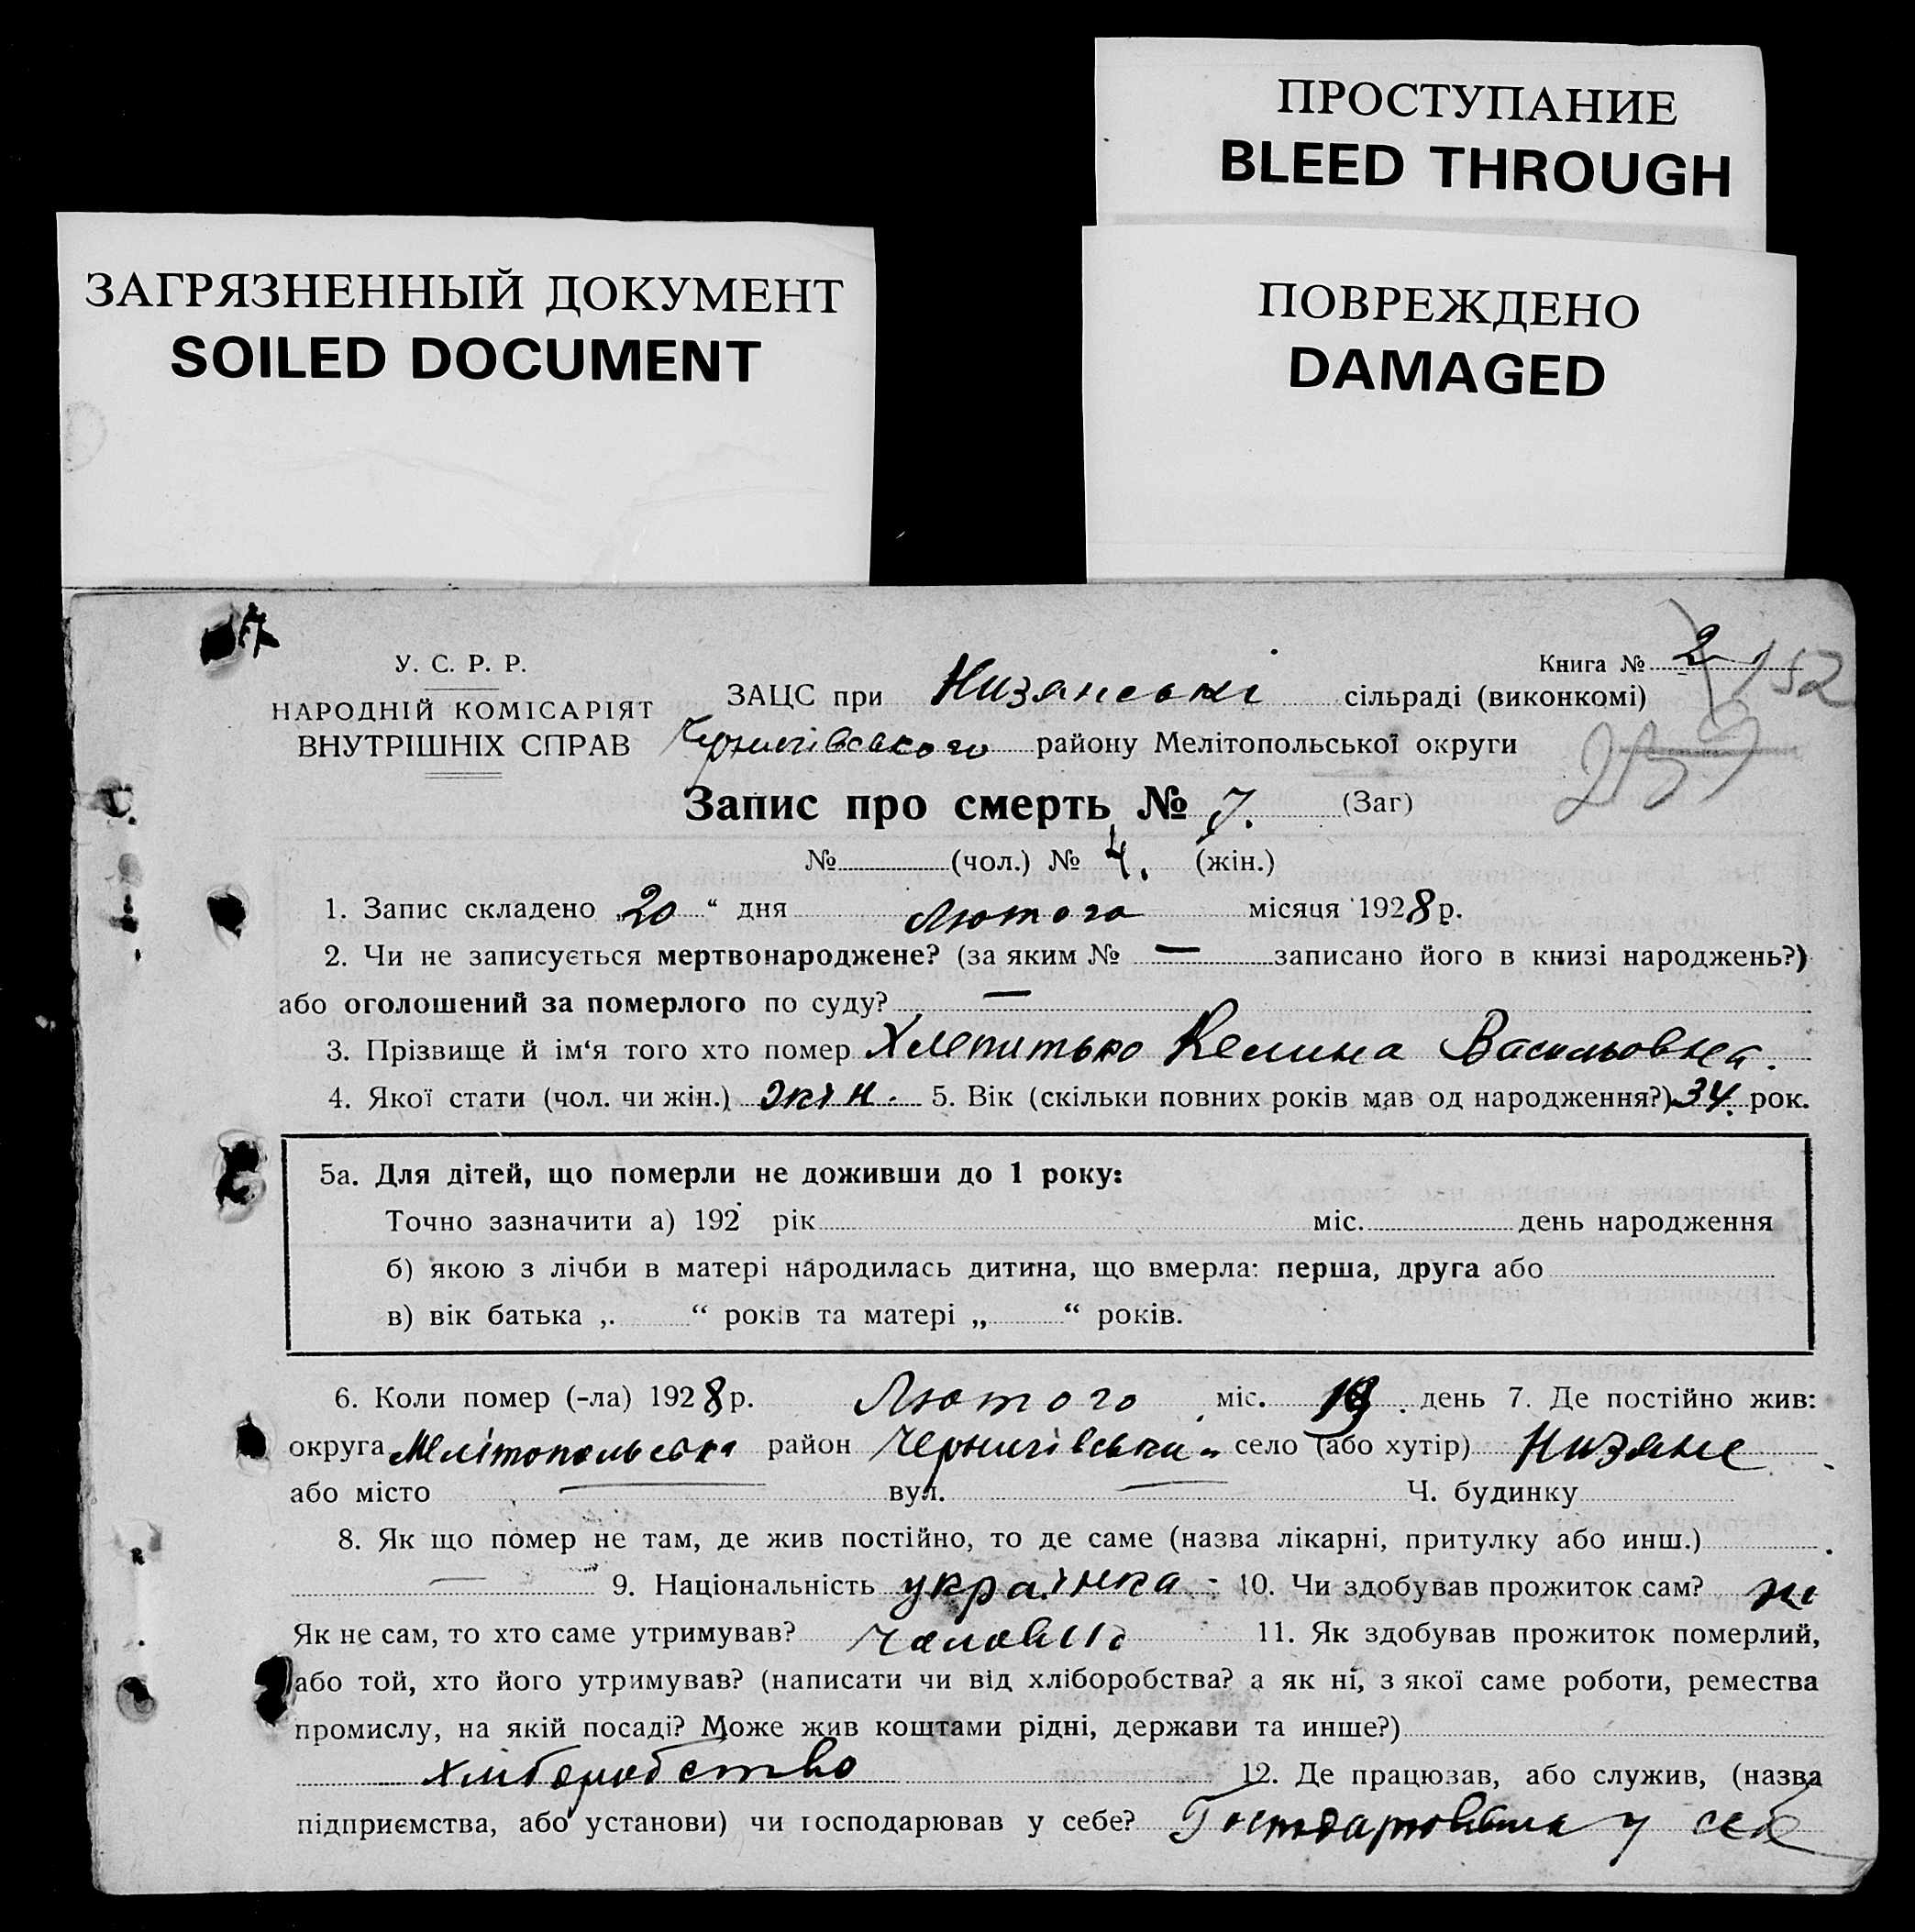 ПРОСТУПАНИЕ
BLEED THROUGH
ЗАГРЯЗНЕННЫЙ ДОКУМЕНТ
SOILED DOCUMENT
ПОВРЕЖДЕНО
DAMAGED
У. С. Р. Р.
НАРОДНІЙ КОМІСАРІЯТ
ВНУТРІШНІХ СПРАВ
Книга № 2
152
ЗАЦС при Низянські сільраді (виконкомі)
Чернигівського району Мелітопольської округи
Запис про смерть № 7. (Заг)
№ (чол.) № 4. (жін.)
1. Запис складено „20“ дня Лютого місяця 1928 р.
2. Чи не записується мертвонароджене? (за яким № — записано його в книзі народжень?)
або оголошений за померлого по суду? —
3. Прізвище й ім‘я того хто помер Васильовна.
4. Якої стати (чол. чи жін.) жін. 5. Вік (скільки повних років мав од народження?) 34. рок.
5а. Для дітей, що померли не доживши до 1 року:
Точно зазначити а) 192 рік міс. день народження
б) якою з лічби в матері народилась дитина, що вмерла: перша, друга або
в) вік батька „ “ років та матері „ “ років.
6. Коли помер (-ла) 1928 р. Лютого міс. день 7. Де постійно жив:
округа Мелітопольська район Чернигівськи село (або хутір) Низяне
або місто — вул. — Ч. будинку
8. Як що помер не там, де жив постійно, то де саме (назва лікарні, притулку або инш.)
— 9. Національність українка 10. Чи здобував прожиток сам? ні
Як не сам, то хто саме утримував? 11. Як здобував прожиток померлий,
або той, хто його утримував? (написати чи від хліборобства? а як ні, з якої саме роботи, ремества
промислу, на якій посаді? Може жив коштами рідні, держави та инше?)
хліборобство 12. Де працював, або служив, (назва
підприємства, або установи) чи господарював у себе? Господарювала у себе